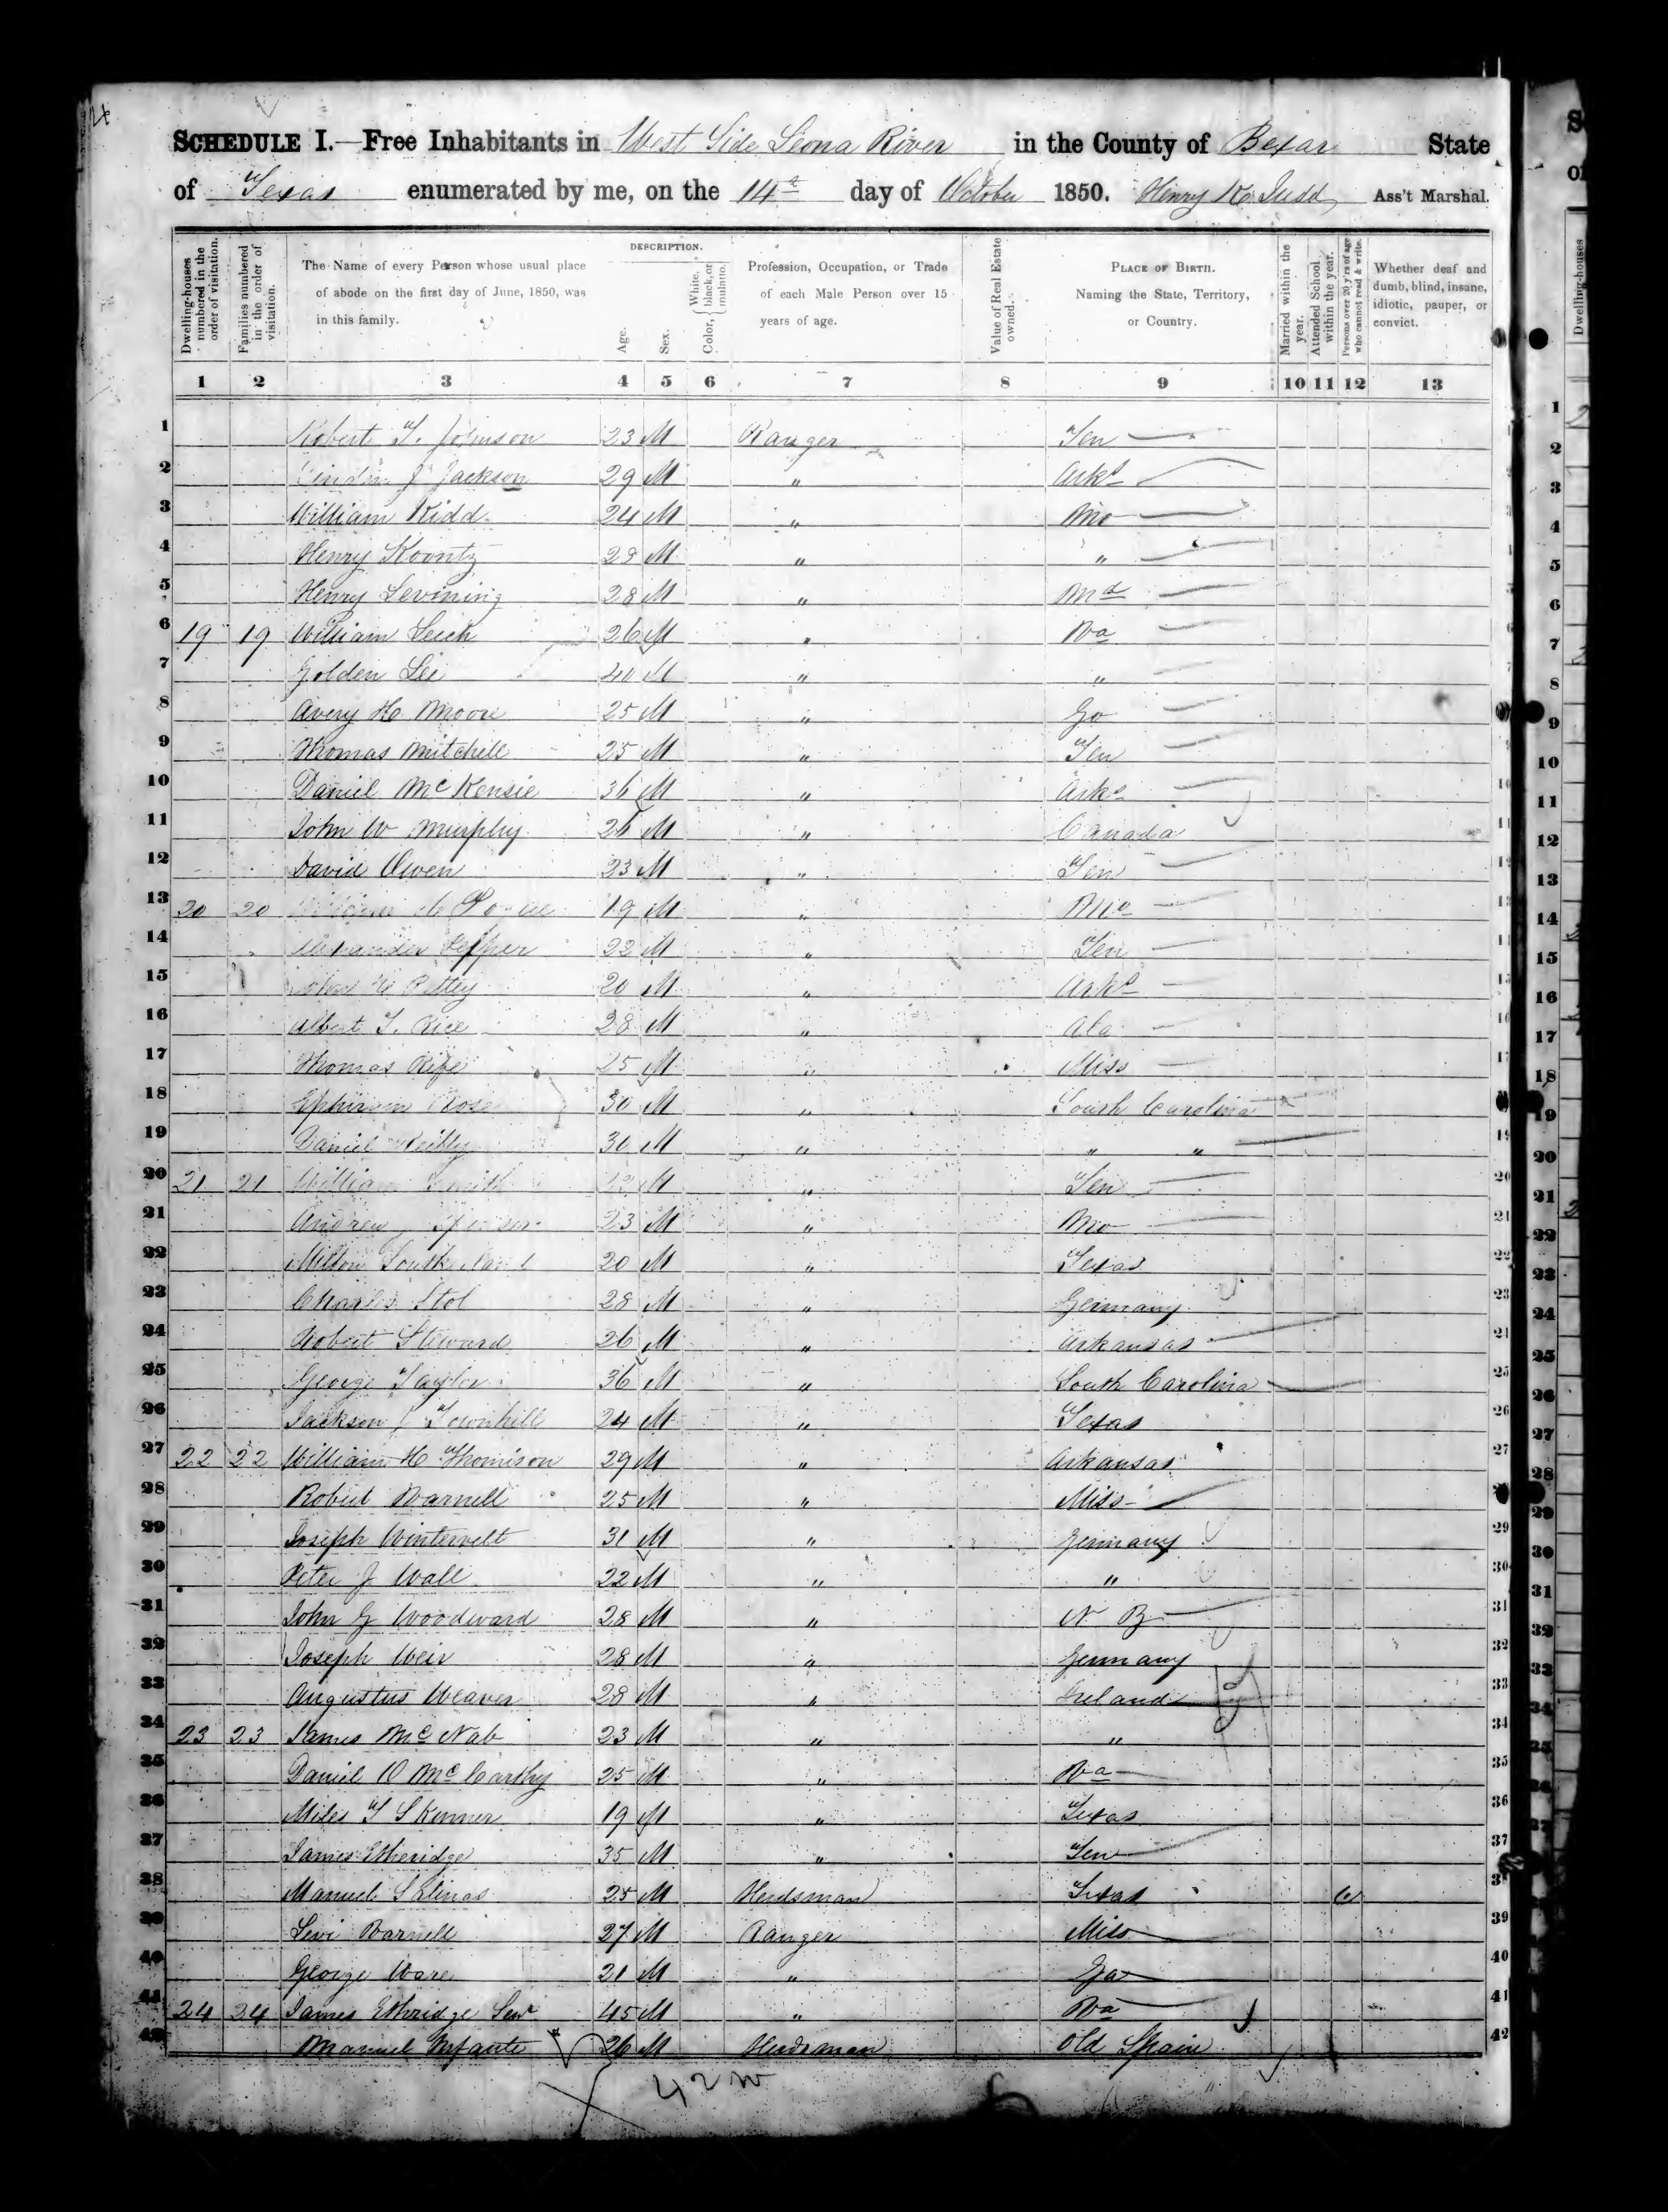 SCHEDULE I.—Free Inhabitants in West Side Leona River in the County of Bexar State
of Texas enumerated by me, on the 14th day of October 1850. Henry K. Judd, Ass't Marshal.
Dwelling-houses numbered in the order of visitation.
Families numbered in the order of visitation.
The Name of every Person whose usual place of abode on the first day of June, 1850, was in this family.
DESCRIPTION.
Age.
Sex.
Color, { White, black, or mulatto.
Profession, Occupation, or Trade of each Male Person over 15 years of age.
Value of Real Estate owned.
PLACE OF BIRTH.
Naming the State, Territory, or Country.
Married within the year.
Attended School within the year.
Persons over 20 y'rs of age who cannot read & write.
Whether deaf and dumb, blind, insane, idiotic, pauper, or convict.
1 2 3 4 5 6 7 8 9 10 11 12 13
1 Robert T. Johnson 23 M Ranger Ten
2 J Jackson 29 M " Arks
3 William Kidd 24 M " Mo
4 Henry Koontz 28 M " "
5 Henry Levining 28 M " Md
6 19 19 William Leich 26 M " Va
7 Golden Lee 40 M " "
8 Avery H. Moore 25 M " Go
9 Thomas Mitchell 25 M " Ten
10 Daniel McKensie 36 M " Arks
11 John W Murphy 26 M " Canada
12 David Owen 23 M " Ten
13 20 20 19 M " Mo
14 Alexander Pepper 22 M " Ten
15 John Pettey 20 M " Arks
16 Albert T. Rice 28 M " Ala
17 Thomas Rife 25 M " Miss
18 Ephriam Rose 30 M " South Carolina
19 Daniel Reilly 30 M " " "
20 21 21 William Smith M " Ten
21 Andrew J 23 M " Mo
22 Milton Southerland 20 M " Texas
23 Charles Stol 28 M " Germany
24 Robert Steward 26 M " Arkansas
25 George Taylor 36 M " South Carolina
26 Jackson J Townhill 24 M " Texas
27 22 22 William H Thomison 29 M " Arkansas
28 Robert Warnell 25 M " Miss
29 Joseph Wintervelt 31 M " Germany
30 Peter J Wall 22 M " "
31 John G Woodward 28 M " N B
32 Joseph Weir 28 M " Germany
33 Augustus Weaver 28 M " Ireland
34 23 23 James McNab 23 M " "
35 Daniel O McCarthy 25 M " Va
36 Miles T Skinner 19 M " Texas
37 James Etheridge 35 M " Ten
38 Manuel Salinas 25 M Herdsman Texas
39 Levi Warnell 27 M Ranger Miss
40 George Ware 21 M " Ga
41 24 24 James Ethridge Senr 45 M " Va
42 Manuel Infante 26 M Herdsman Old Spain
42 w